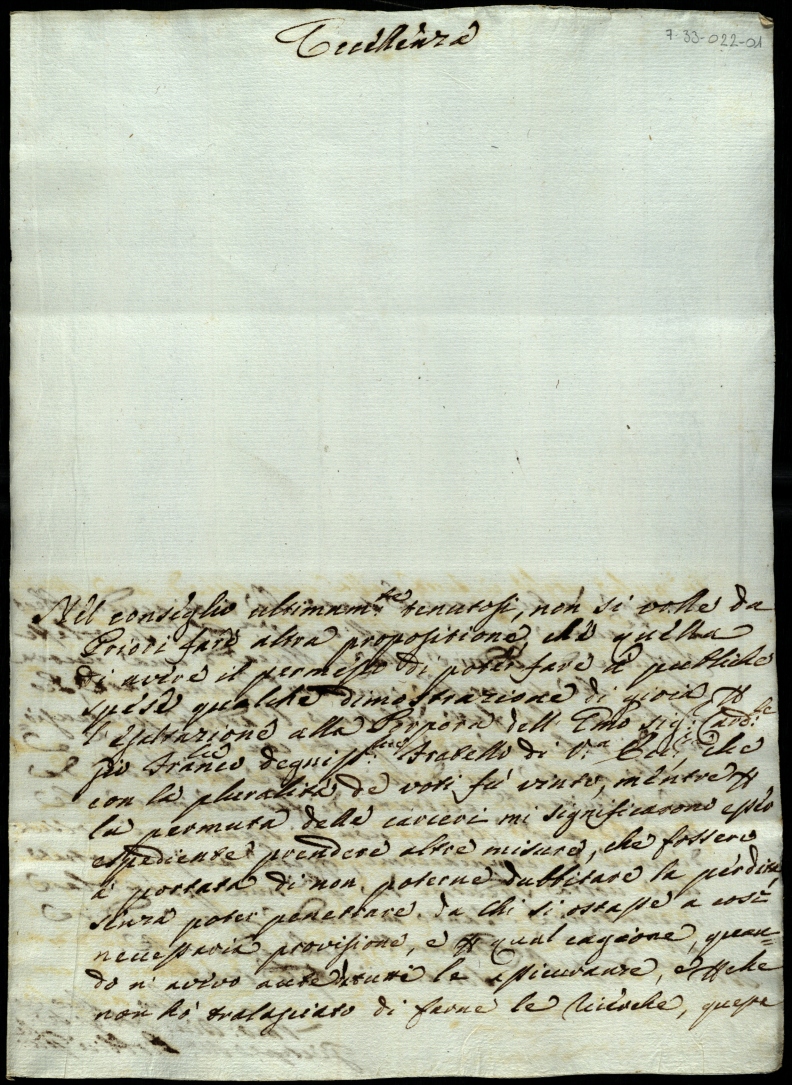 Eccellenza
7-33-022-01
Nel consiglio ultimam.te tenutosi, non si volle da
Priori fare altra propositione, che quella
di avere il permesso di poter fare à publiche
spese qualche dimostrazione di gioia
l'esaltazione alla Porpora dell' Emo Sig.r Card.le
Gio Fran.co degniss.mo fratello di V.ra Ecc.a, che
con la pluralità de voti fù vinto, mentre
la permuta delle carceri mi significarono esser
espediente prendere altre misure, che fossero
à portata di non poterne dubbitare la perdita,
senza poter penetrare da chi si ostasse a così
necessaria provisione, e qual cagione, quan=
do n' avevo avute tutte le assicuranze, e che
non hò tralasciato di farne le ricerche, queste